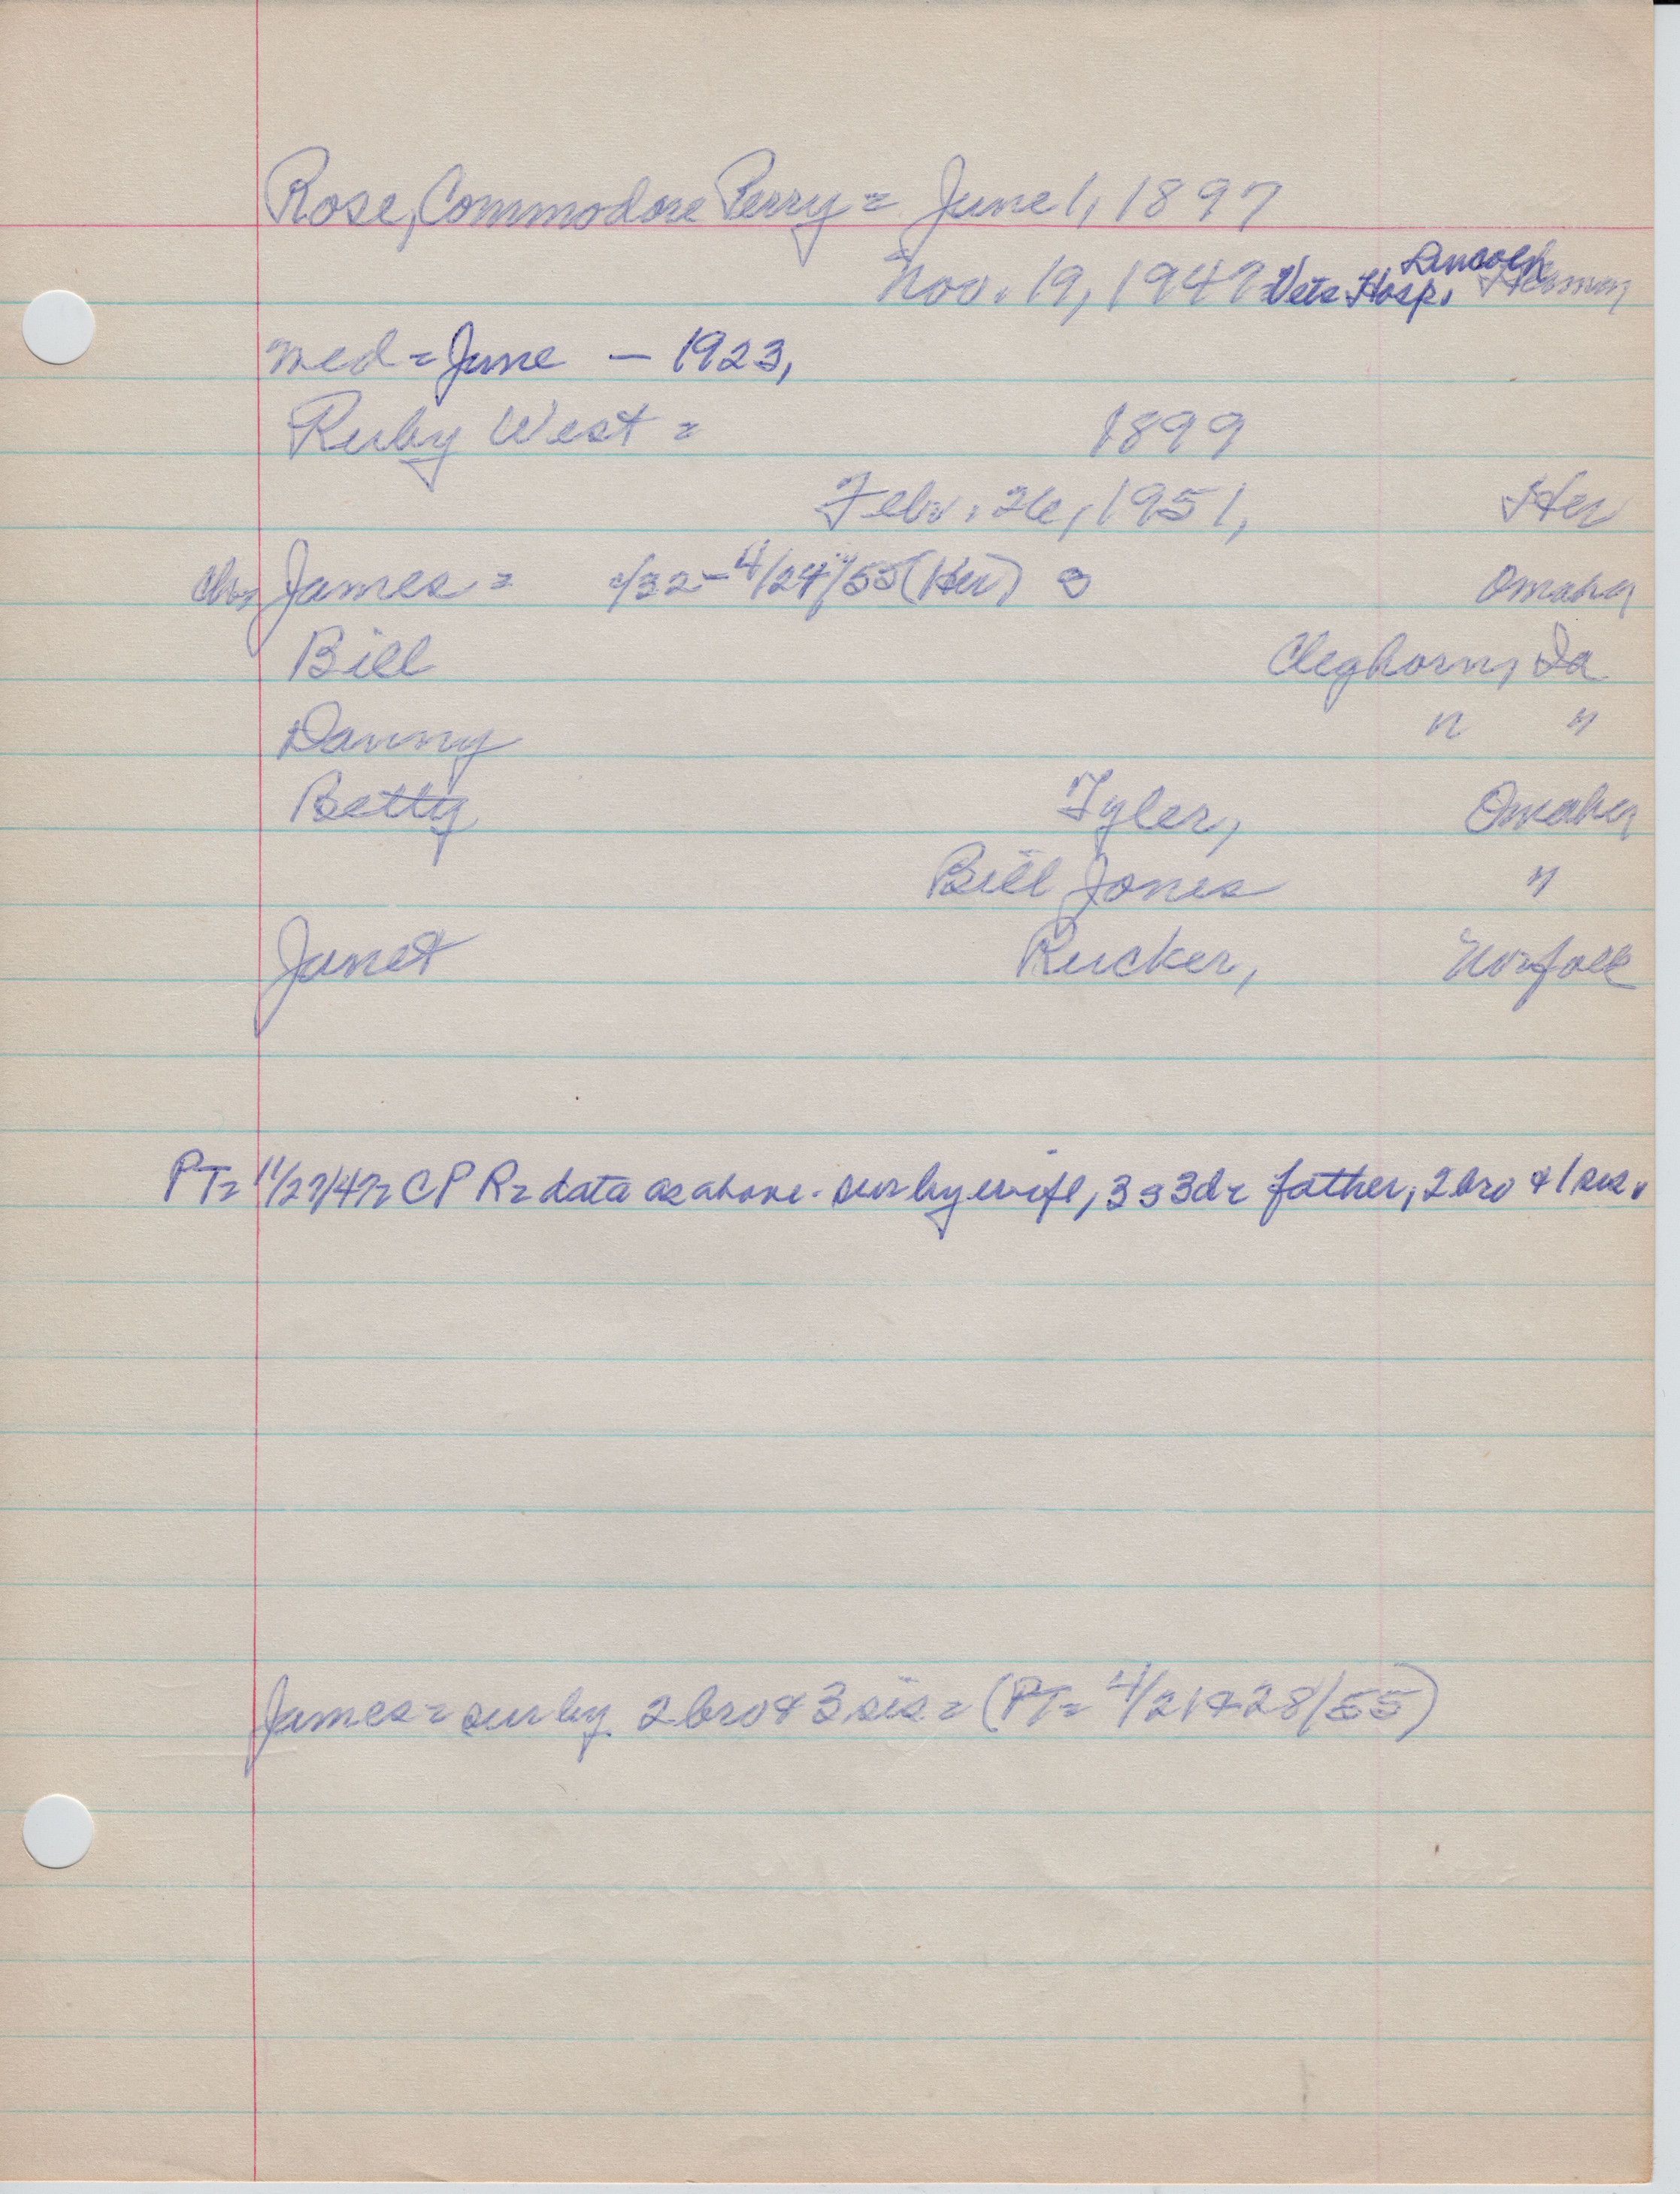 Rose, Commodore Perry = June 1, 1897
Lincoln
Nov. 19, 1947 Vets Hosp. Herman
med = June — 1923,
Ruby West = 1899
Febr. 26, 1951, Her
chr James = /32 - 4/24/55 (Her) Omaha
Bill Cleghorn, Ia
Danny " "
Betty Tyler, Omaha
Bill Jones "
Janet Rucker, Norfolk
PT= 11/27/47= CPR= data as above. sur by wife, 3s 3d= father, 2 bro & 1 sis.
James = sur by 2 bro & 3 sis = (PT= 4/21+28/55)